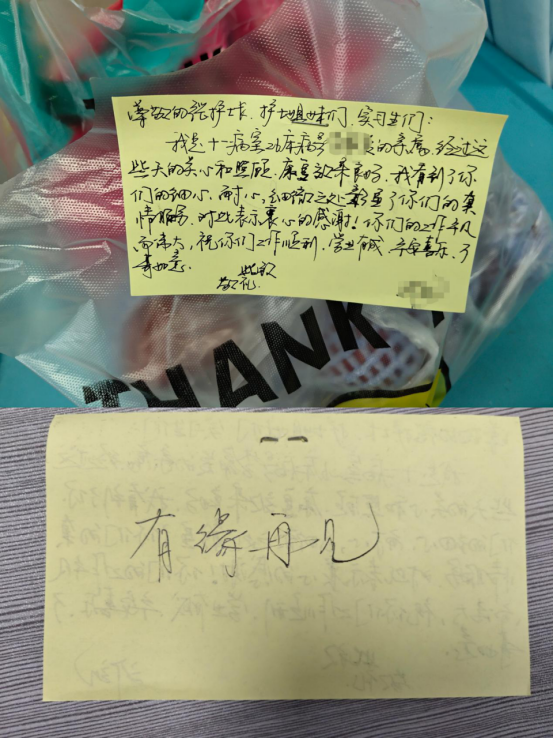 尊敬的张护士长、护士姐妹们、实习生们：
我是十一病室26床病号的亲属，经过这
些天的关心和照顾，康复效果良好，我看到了你
们的细心、耐心，细微之处彰显了你们的真
情服务，对此表示衷心的感谢！你们的工作平凡
而伟大，祝你们工作顺利、学业有成、平安喜乐、万
事如意。
此致
敬礼
THANK Y
有缘再见